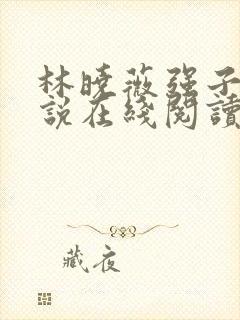 林晓薇强子
說在綫閱讀
藏夜